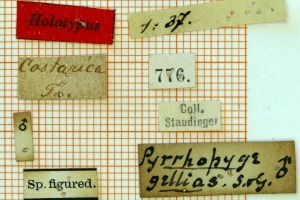 Holotypus
1:37.
Costarica
776.
Coll.
Staudinger
♂
Sp. figured.
Pyrrhopyge
gellias. ♂